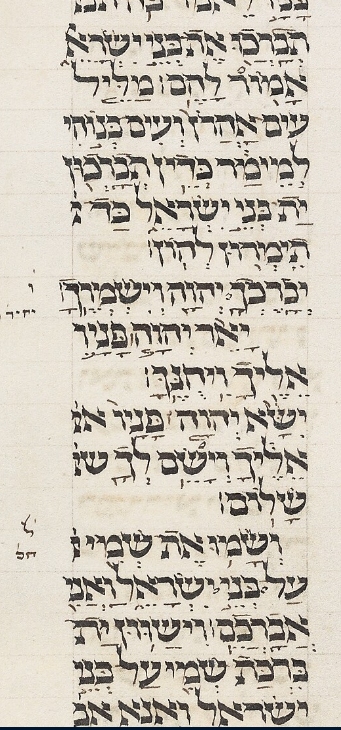 תברכו את בני ישרא
אמור להם׃ מליל
עים אהרן ועים בנוהי
למימר כדין תברכון
ית בני ישראל כד
תימרון להון׃
יברכך יהוה וישמרך׃
יאר יהוה פניו
אליך ויחנך׃
ישא יהוה פניו א
אליך וישם לך ש
שלום׃
ושמו את שמי
על בני ישראל ואני
אברכם׃ וישוון ית
ברכת שמי על בני
ישראל ואנא אב